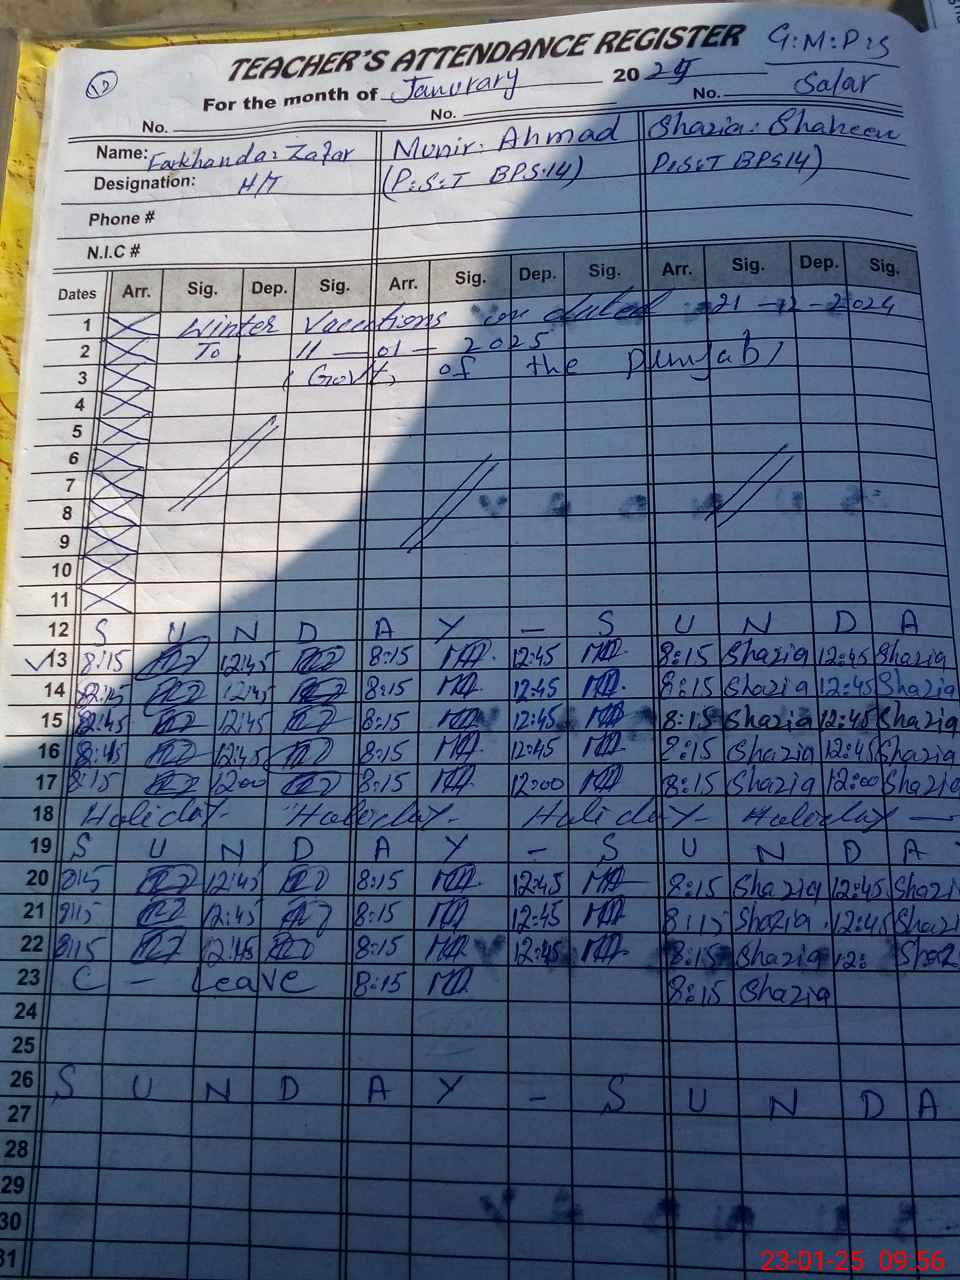 G:M:P:S
TEACHER'S ATTENDANCE REGISTER
Salar
For the month of Janurary 20
No. No. No.
Name: Farkhanda: Zafar Munir: Ahmad Shazia: Shaheen
Designation: H/T (P:S:T BPS.14) P:S:T BPS14)
Phone #
N.I.C #
Dates Arr. Sig. Dep. Sig. Arr. Sig. Dep. Sig. Arr. Sig. Dep. Sig.
1 Winter Vacations dated 21-12-2024
2 To 11-01-2025
3 (Govt, of the Punjab)
4
5
6
7
8
9
10
11
12 S U N D A Y - S U N D A
13 8:15 12:45 8:15 12:45 8:15 Shazia 12:45 Shazia
14 12:45 8:15 12:45 8:15 Shazia 12:45 Shazia
15 12:45 8:15 12:45 8:15 Shazia 12:45 Shazia
16 12:45 8:15 12:45 8:15 Shazia 12:45 Shazia
17 8:15 12:00 8:15 12:00 8:15 Shazia 12:00 Shazia
18 Holiday - Holiday - Holiday - Holiday -
19 S U N D A Y - S U N D A
20 8:15 12:45 8:15 12:45 8:15 Shazia 12:45 Shazi
21 8:15 12:45 8:15 12:45 8:15 Shazia 12:45 Shazi
22 8:15 12:45 8:15 12:45 8:15 Shazia 12: Shaz
23 C - Leave 8:15 8:15 Shazia
24
25
26 S U N D A Y - S U N D A
27
28
29
30
31
23-01-25 09.56